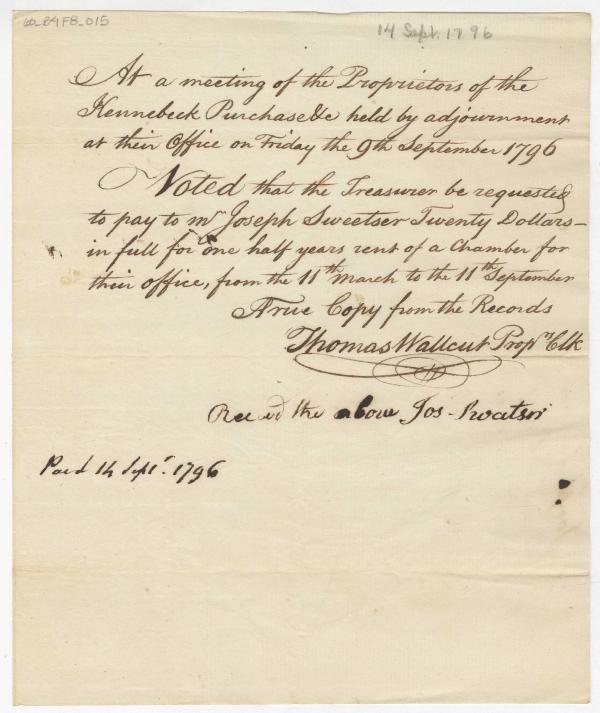 60_24F8_015
14 Sept. 1796
At a meeting of the Proprietors of the
Kennebeck Purchase &c held by adjournment
at their Office on Friday the 9th September 1796
Voted that the Treasurer be requested
to pay to mr Joseph Sweetser Twenty Dollars—
in full for one half years rent of a Chamber for
their office, from the 11th March to the 11th September
A True Copy from the Records
Thomas Wallcut Proprs Clk
Receivd the above Jos
Paid 14 Sept. 1796